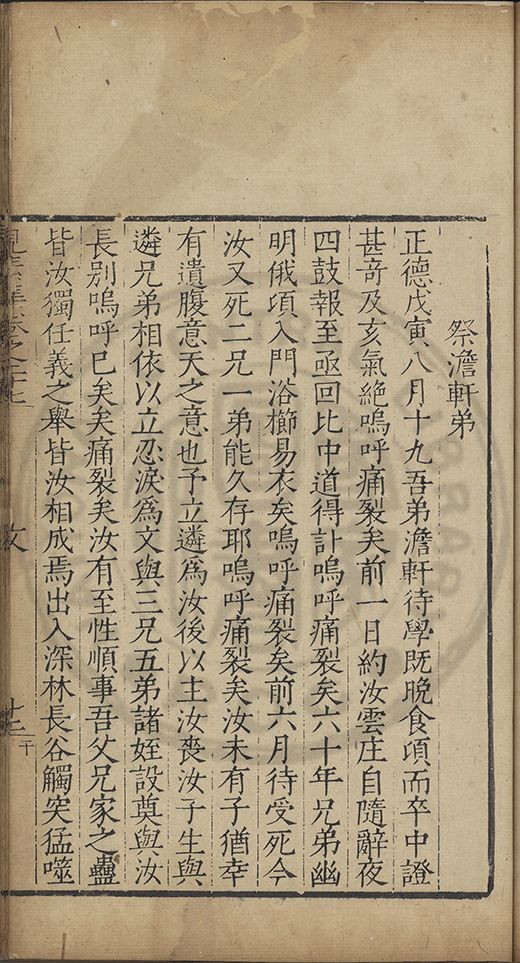 祭澹軒弟
正德戊寅八月十九吾弟澹軒待學既晩食頃而卒中證
甚竒及亥氣絶嗚呼痛裂矣前一日約汝雲庄自隨辭夜
四鼓報至亟回比中道得訃嗚呼痛裂矣六十年兄弟幽
明俄頃入門浴櫛易衣矣嗚呼痛裂矣前六月待受死今
汝又死二兄一弟能久存耶嗚呼痛裂矣汝未有子猶幸
有遺腹意天之意也予立遴爲汝後以主汝喪汝子生與
遴兄弟相依以立忍淚爲文與三兄五弟諸姪設奠與汝
長別嗚呼已矣矣痛裂矣汝有至性順事吾父兄家之蠱
皆汝獨任義之舉皆汝相成焉出入深林長谷觸突猛噬
見素集卷之二十七
文